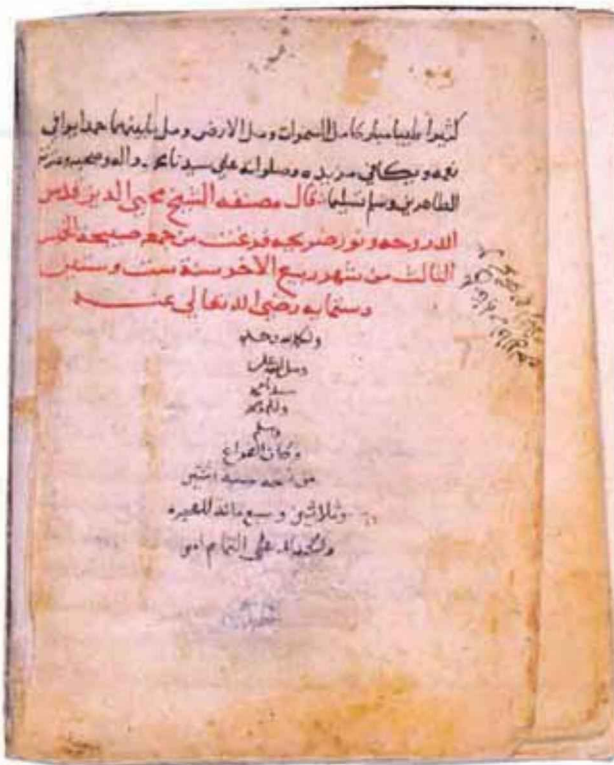 كثيرا طيبا مباركا مل السموات ومل الارض ومل ما بينهما حمدا يوافي
نعمه ويكافي مزيده وصلواته على سيدنا محمد واله وصحبه
الطاهرين وسلم تسليما قال مصنفه الشيخ محيي الدين قدس
الله روحه ونور ضريحه فرغت من جمعه صبيحة الخميس
الثالث من شهر ربيع الاخر سنة ست وستين
وستمايه رضي الله تعالى عنه
والحمد لله وحده
وصلى الله على
سيدنا محمد
واله وصحبه
وسلم
وكان الفراغ
من نسخه سنة اثنين
وثلاثين وسبع مائه للهجره
والحمد لله على التمام